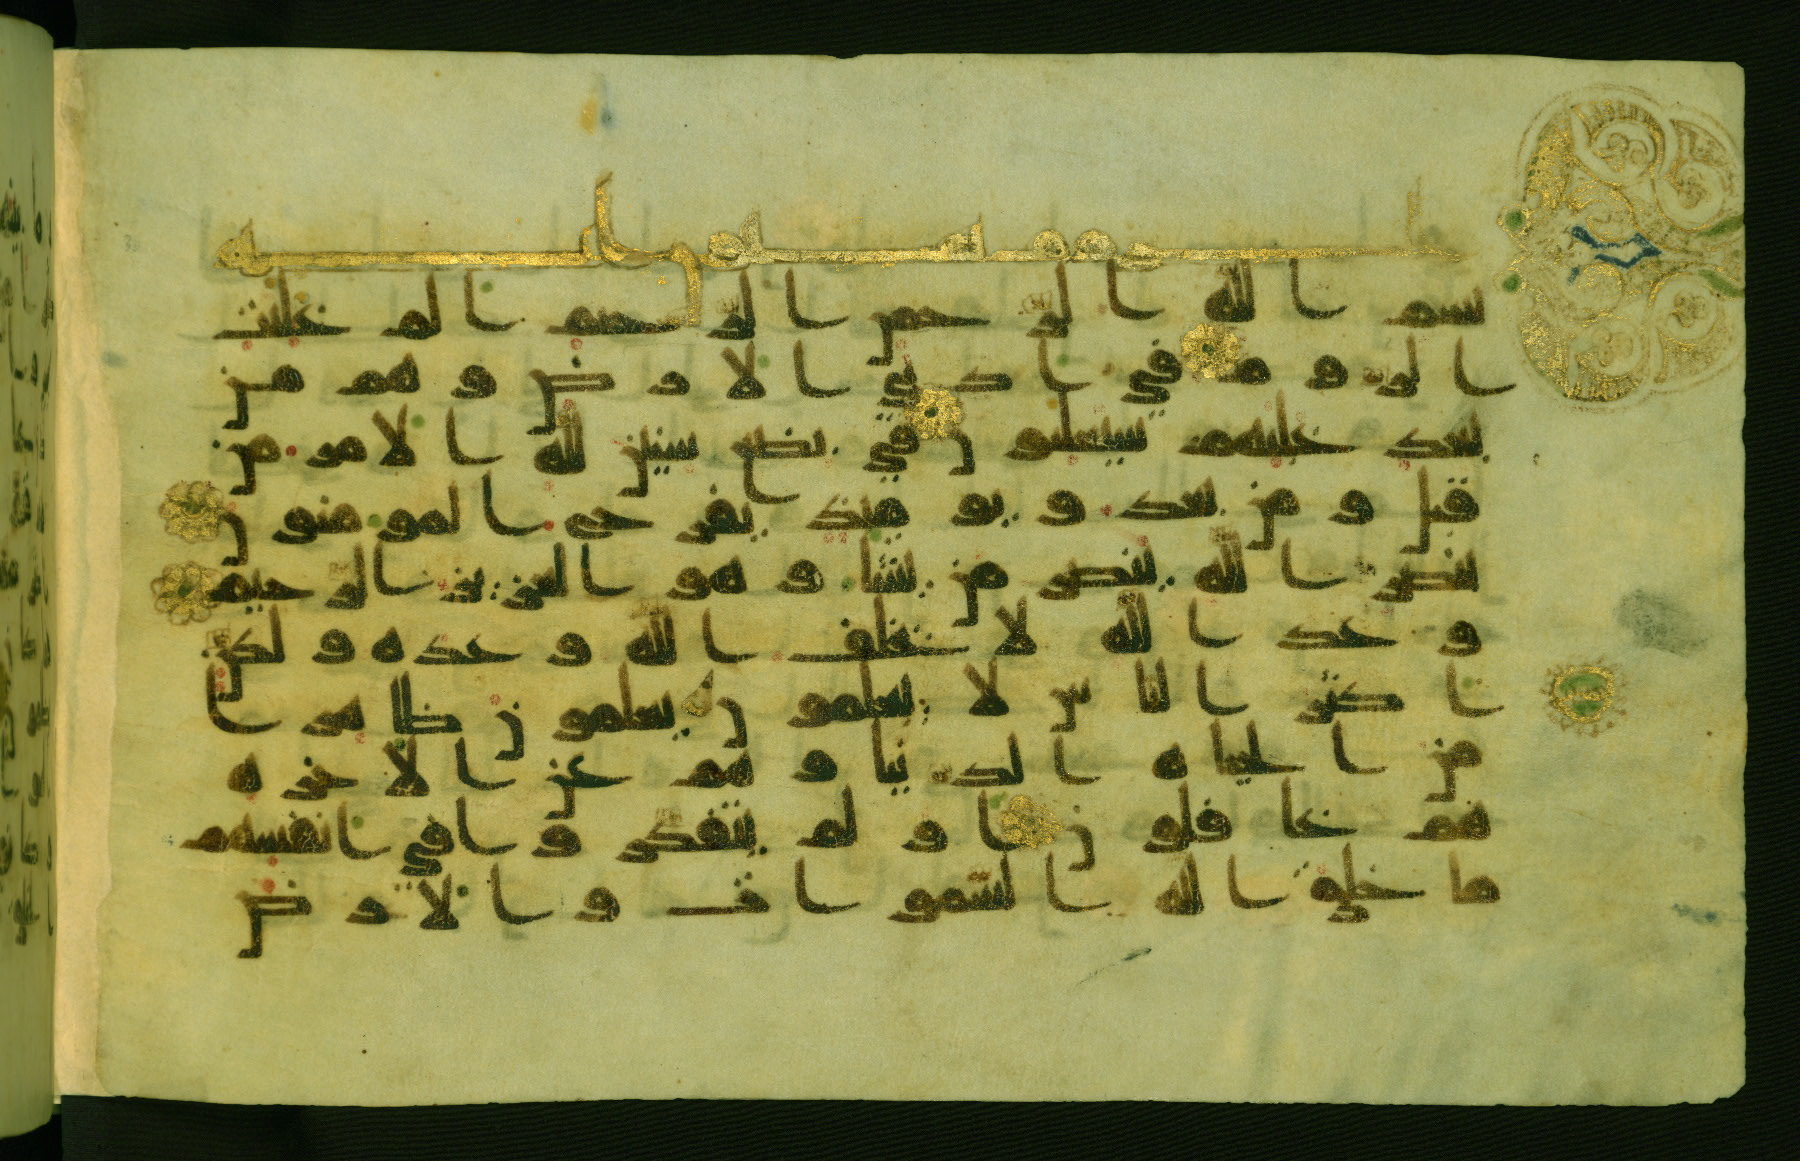 بسم الله الرحمن الرحيم الم غلبت
الروم في ادنى الارض وهم من
بعد غلبهم سيغلبون في بضع سنين لله الامر من
قبل ومن بعد ويومئذ يفرح المومنون
بنصر الله ينصر من يشا وهو العزيز الرحيم
وعد الله لا يخلف الله وعده ولكن
اكثر الناس لا يعلمون يعلمون ظاهرا
من الحياة الدنيا وهم عن الاخرة
هم غافلون اولم يتفكروا في انفسهم
ما خلق الله السموات والارض